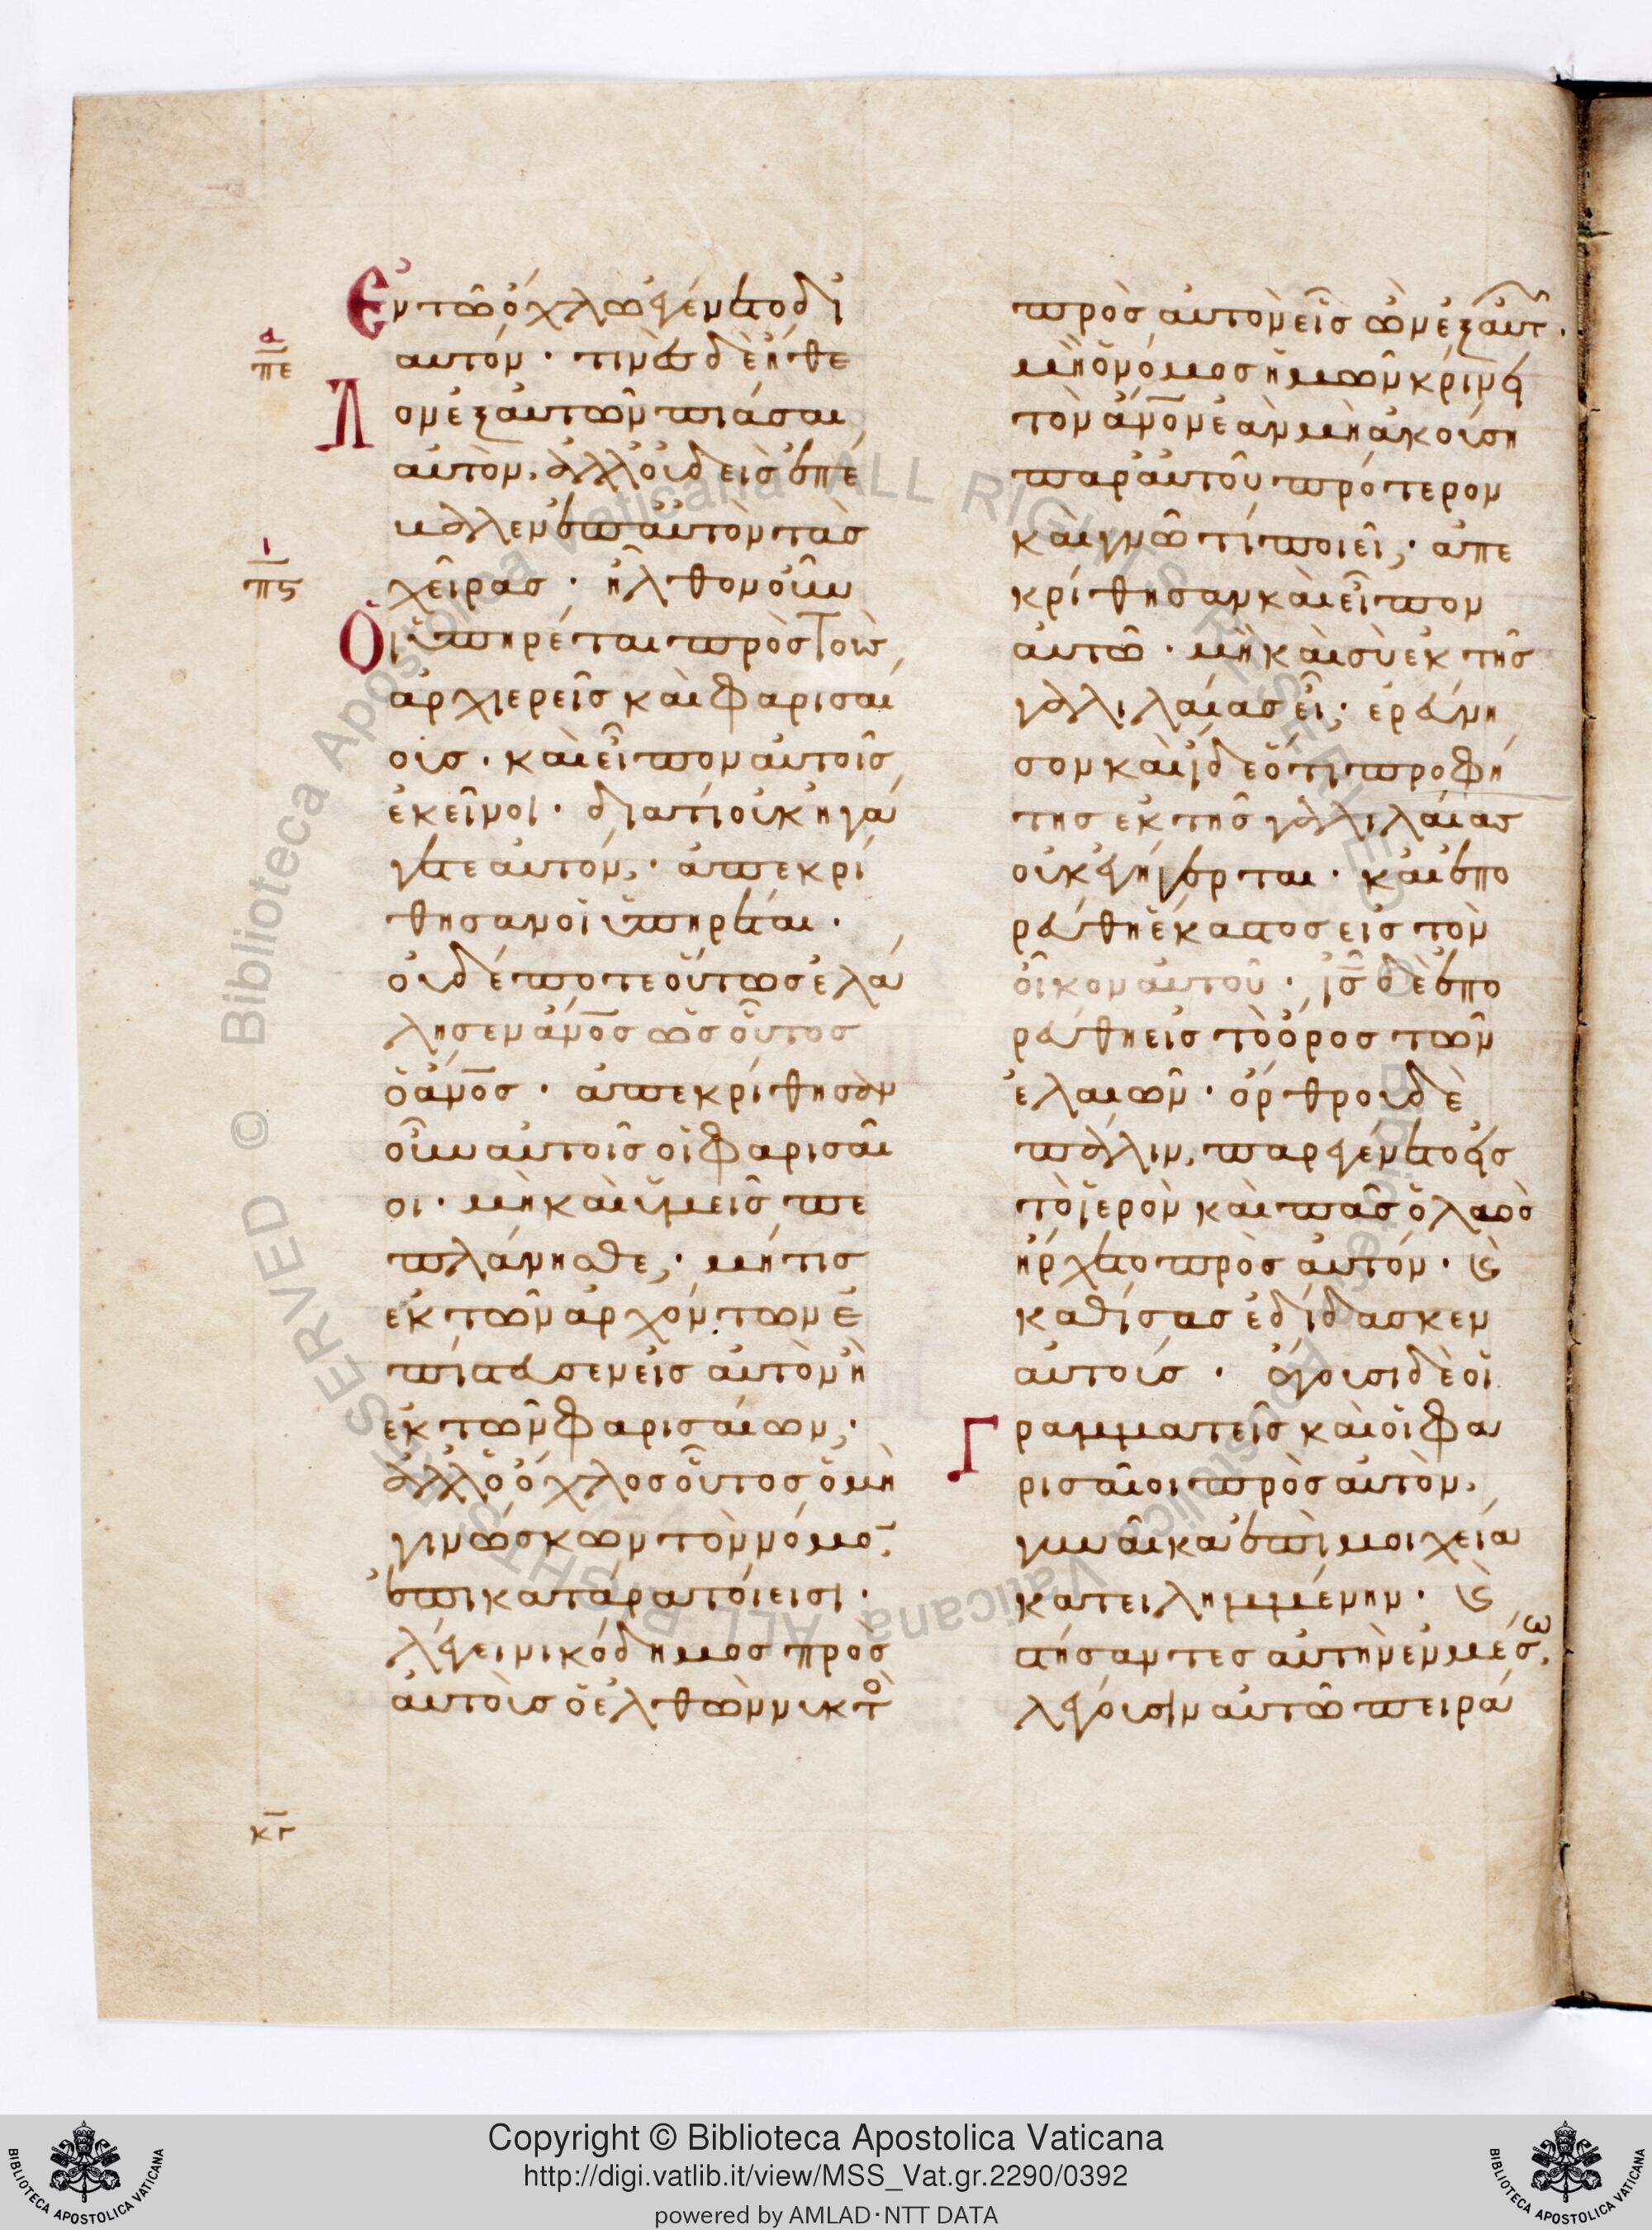 Ἐν τῶ ὄχλω ἐγένετο δι
αυτόν · τινὲσ δὲ ἤθε
λον ἐξ αυτῶν πιάσαι
αὐτὸν, ἀλλ οὐδεὶσ ἐπέ
βαλεν ἐπ αὐτὸν τὰσ
χεῖρασ · ἦλθον οὖν
Ὁι ὑπηρέται πρὸσ τοὺσ
ἀρχιερεῖσ καὶ φαρισαί
ουσ · καὶ εἶπον αυτοῖσ
ἐκεῖνοι · διατί οὐκ ηγά
γετε αυτόν; · ἀπεκρί
θησαν οἱ ὑπηρέται ·
οὐδέποτε οὕτωσ ἐλά
λησεν ἄν̅ο̅σ̅ ὡσ οὗτοσ
ὁ ἄν̅ο̅σ̅ · ἀπεκρίθησαν
οὖν αυτοῖσ οἱ φαρισαῖ
οι · μὴ καὶ ὑμεῖσ πε
πλάνησθε; · μήτισ
ἐκ τῶν αρχόντων ἐ
πίστευσεν εἰσ αὐτὸν ἢ
ἐκ τῶν φαρισαίων; ·
ἀλλ ὁ ὄχλοσ οὗτοσ ὁ μὴ
γινώσκων τὸν νόμο̅,
ἐπικατάρατόι εισι ·
λέγει νικόδημοσ πρὸσ
ἀυτοὺσ ὁ ἐλθὼν νυκτὸ
πρὸσ ἀυτὸν εἷσ ὢν ἐξ ἀυτ ·
μὴ ὁ νόμοσ ἡμῶν κρίνει
τὸν ἄν̅ο̅ν̅ ἐὰν μὴ ἀκούση
παρ ἀυτοῦ πρότερον
καὶ γνῶ τί ποιεῖ; · ἀπε
κρίθησαν καὶ εἶπον
ἀυτῶ · μὴ καὶ σὺ ἐκ τῆσ
γαλιλαίασ εἶ; · ἐρεύνη
σον καὶ ἴδε ὅτι προφή
τησ ἐκ τῆσ γαλιλαίασ
οὐκ ἐγήγερται · καὶ ἐπο
ρεύθη ἕκαστοσ εἰσ τὸν
οἶκον αυτοῦ · ι̅σ̅ δὲ ἐπο
ρεύθη εἰσ τὸ ὄροσ τῶν
ἐλαιῶν · ὄρθρου δὲ
πάλιν, παρεγένετο εἰσ
τὸ ἱερὸν καὶ πᾶσ ὁ λαὸσ
ἤρχετο πρὸσ αυτόν · ϗ
καθίσασ ἐδίδασκεν
αυτούσ · ἄγουσι δὲ οἱ
Γραμματεῖσ καὶ οἱ φα
ρισαῖοι πρὸσ αυτὸν,
γυναῖκα ἐπὶ μοιχεία
κατειλημμένην · ϗ
στήσαντεσ αυτὴν ἐν μέσω,
λέγουσιν αυτῶ πειρά
α
πε
ι
πϛ
κγ
Biblioteca Apostolica Vaticana ALL RIGHTS RESERVED © Biblioteca Apostolica Vaticana ALL RIGHTS RESERVED ©
Copyright © Biblioteca Apostolica Vaticana
http://digi.vatlib.it/view/MSS_Vat.gr.2290/0392
powered by AMLAD·NTT DATA
BIBLIOTECA APOSTOLICA VATICANA
BIBLIOTECA APOSTOLICA VATICANA